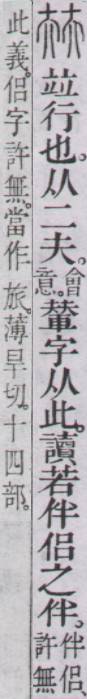 㚘竝行也。从二夫。會意。輦字从此。讀若伴侶之伴。伴侶許無
此義。侶字許無。當作旅。薄旱切。十四部。